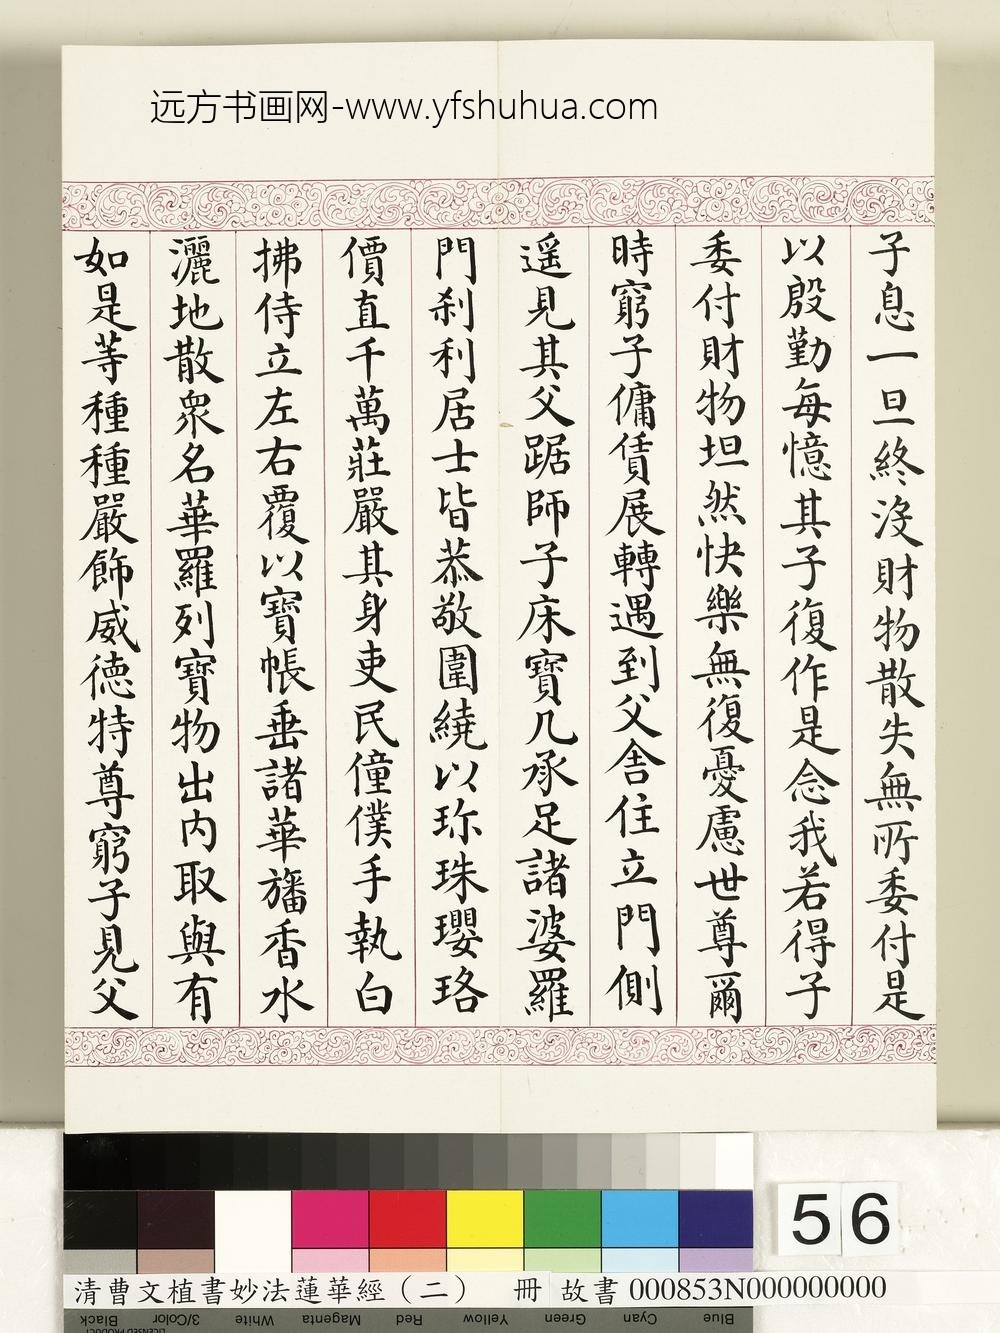 远方书画网-www.yfshuhua.com
子息一旦終沒財物散失無所委付是
以殷勤每憶其子復作是念我若得子
委付財物坦然快樂無復憂慮世尊爾
時窮子傭賃展轉遇到父舍住立門側
遥見其父踞師子床寶几承足諸婆羅
門剎利居士皆恭敬圍繞以珎珠瓔珞
價直千萬莊嚴其身吏民僮僕手執白
拂侍立左右覆以寶帳垂諸華旛香水
灑地散眾名華羅列寶物出內取與有
如是等種種嚴飾威德特尊窮子見父
56
清曹文植書妙法蓮華經（二） 冊 故書 000853N000000000
Black 3/Color White Magenta Red Yellow Green Cyan Blue
LICENSED PRODUCT